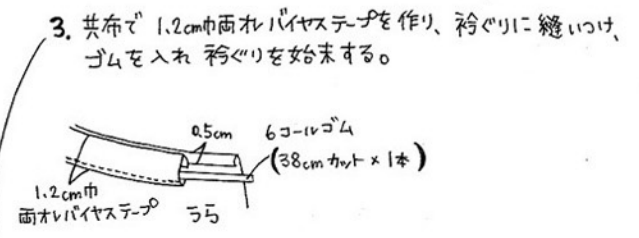 3. 共布で 1.2cm巾両オレバイヤステープを作り、衿ぐりに縫いつけ、
ゴムを入れ 衿ぐりを始末する。
0.5cm
6コールゴム
(38cmカット×1本)
1.2cm巾
両オレバイヤステープ
うら